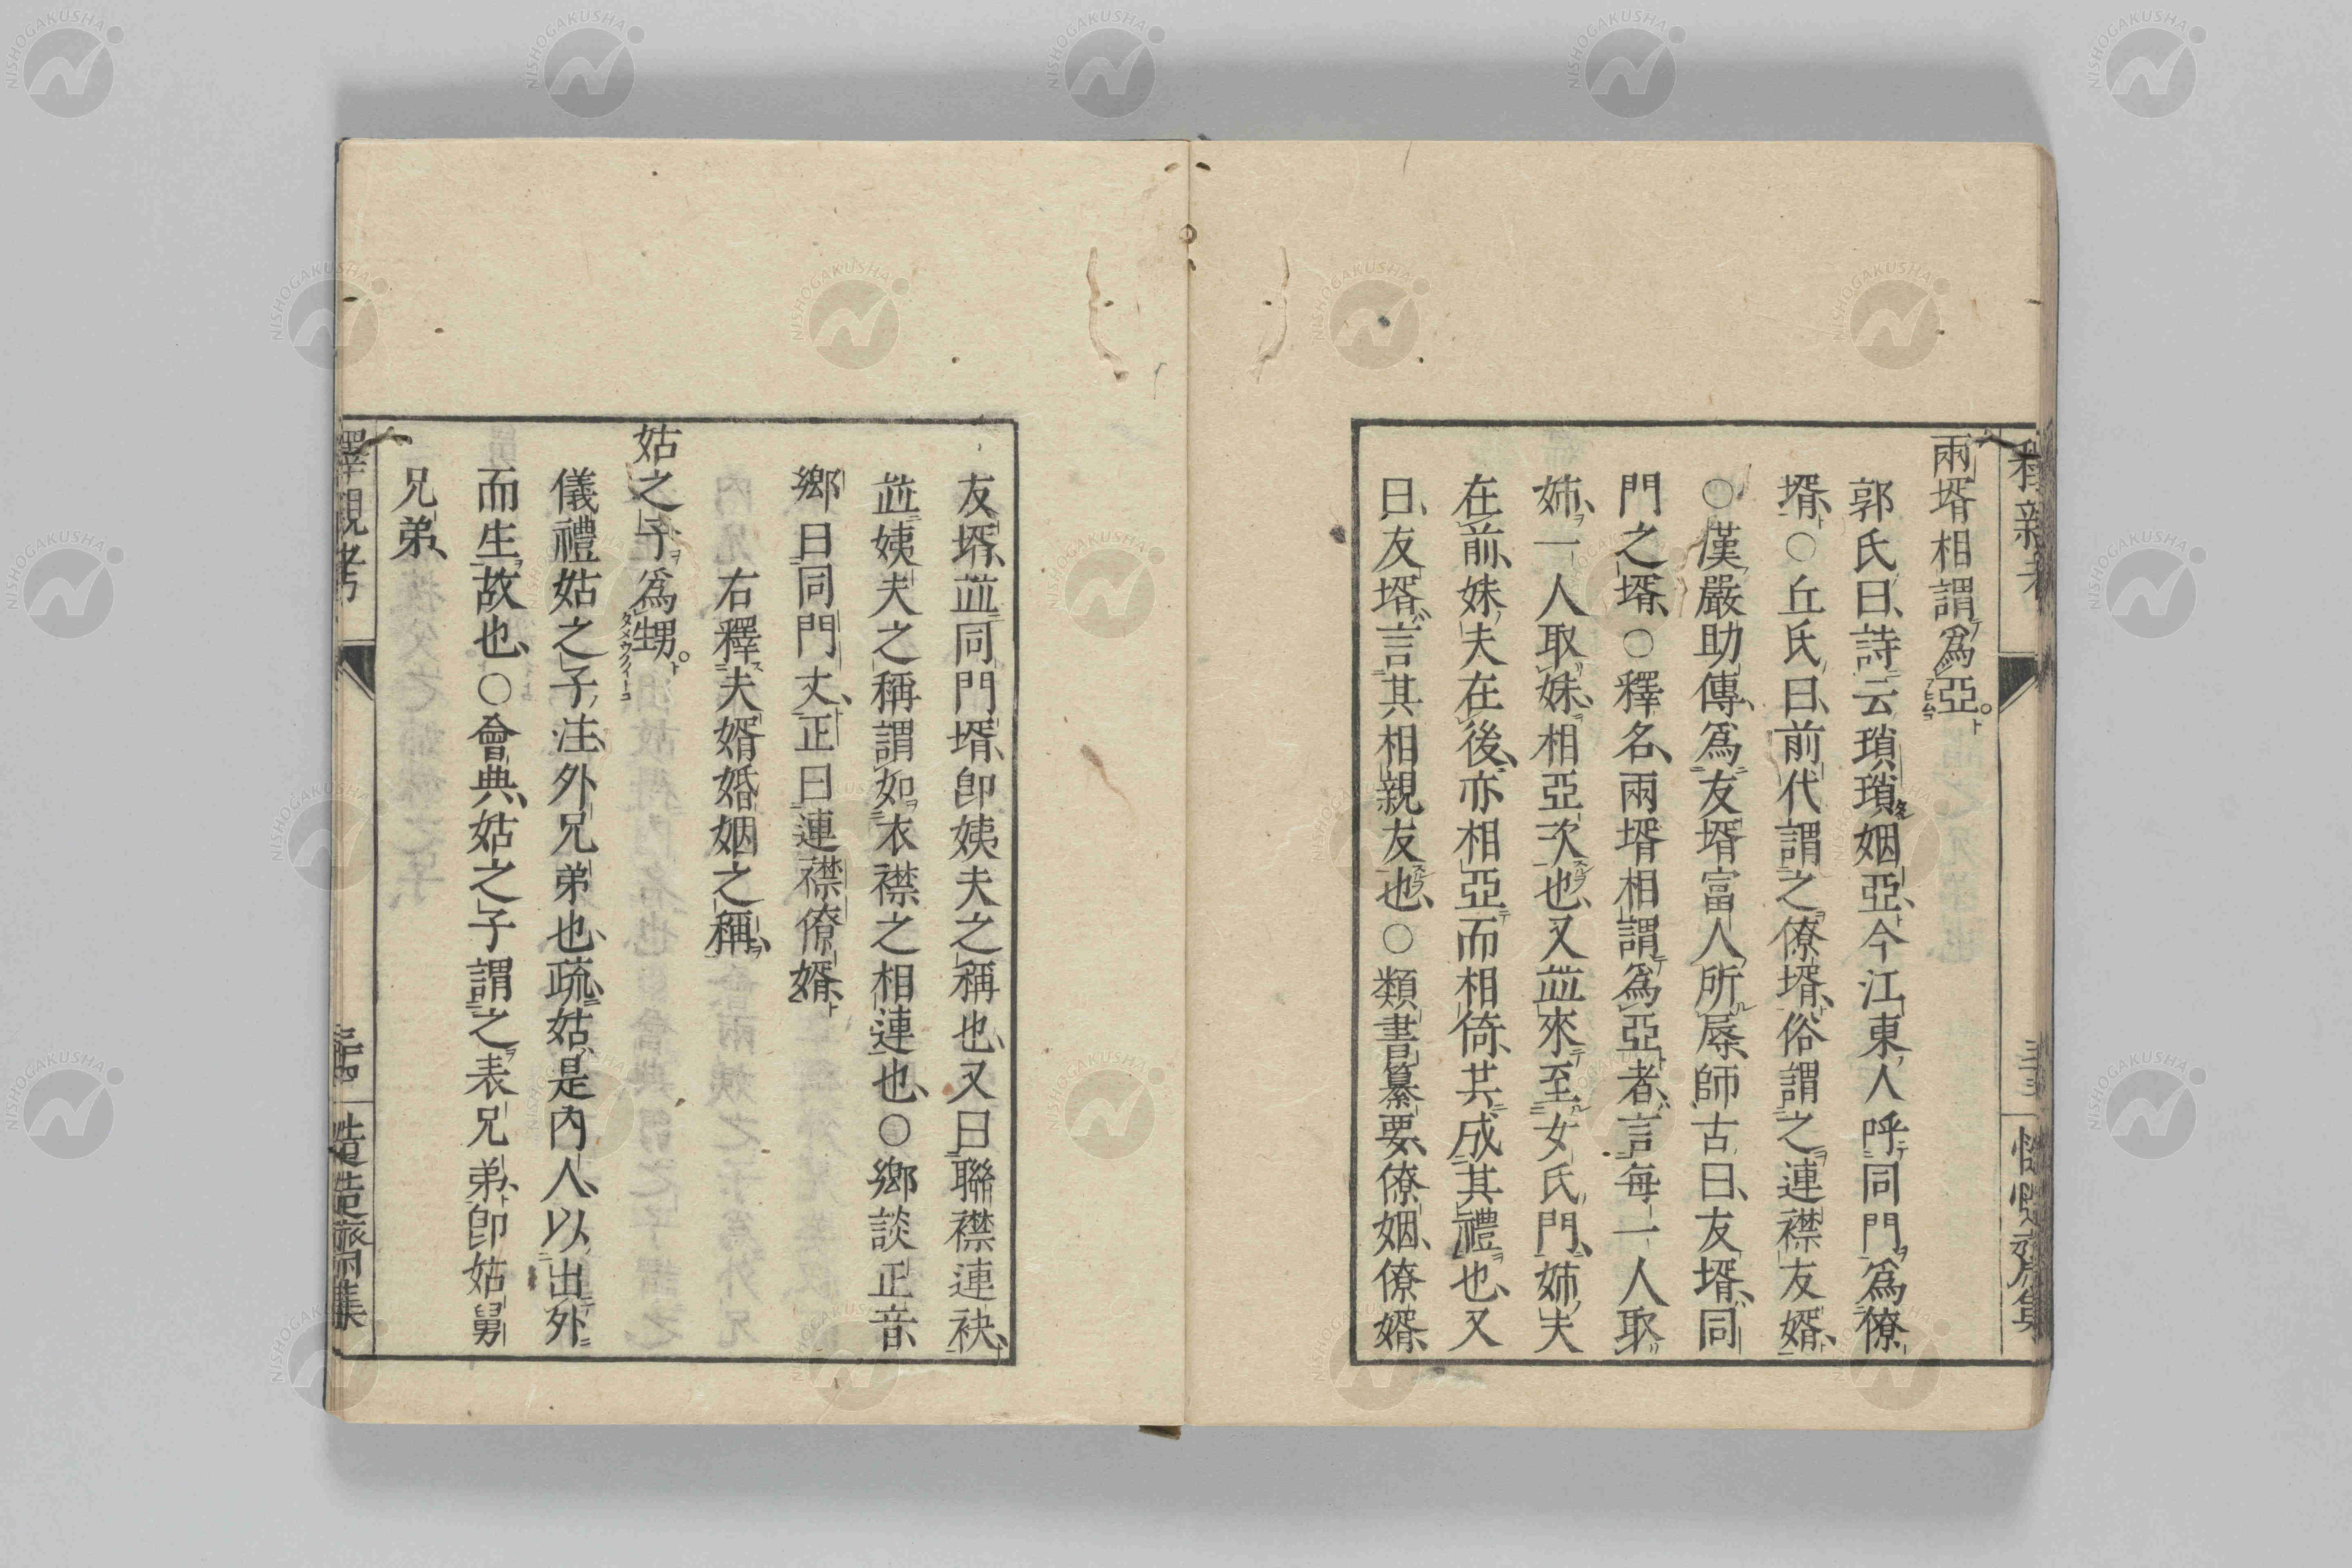 兩壻相謂爲亞。
郭氏曰、詩云瑣瑣姻亞、今江東人呼同門爲僚
壻、○丘氏曰、前代謂之僚壻、俗謂之連襟友婿、
○漢嚴助傳、爲友壻富人所辱、師古曰、友壻、同
門之壻、○釋名、兩壻相謂爲亞者、言每一人取
姉、一人取妹、相亞次也、又並來至女氏門、姉夫
在前、妹夫在後、亦相亞而相倚、共成其禮也、又
曰、友壻、言其相親友也、○類書纂要、僚姻、僚婿、
友壻、並同門壻、卽姨夫之稱也、又曰聯襟連袂、
並姨夫之稱謂如衣襟之相連也、○鄉談正音、
鄉曰同門丈、正曰連襟僚婿、
右釋夫婿婚姻之稱、
姑之子爲甥。
儀禮姑之子、注、外兄弟也、疏、姑是內人、以出外
而生、故也、○會典、姑之子謂之表兄弟、卽姑舅
兄弟、
釋親考
三十四
慥慥齋集
NISHOGAKUSHA